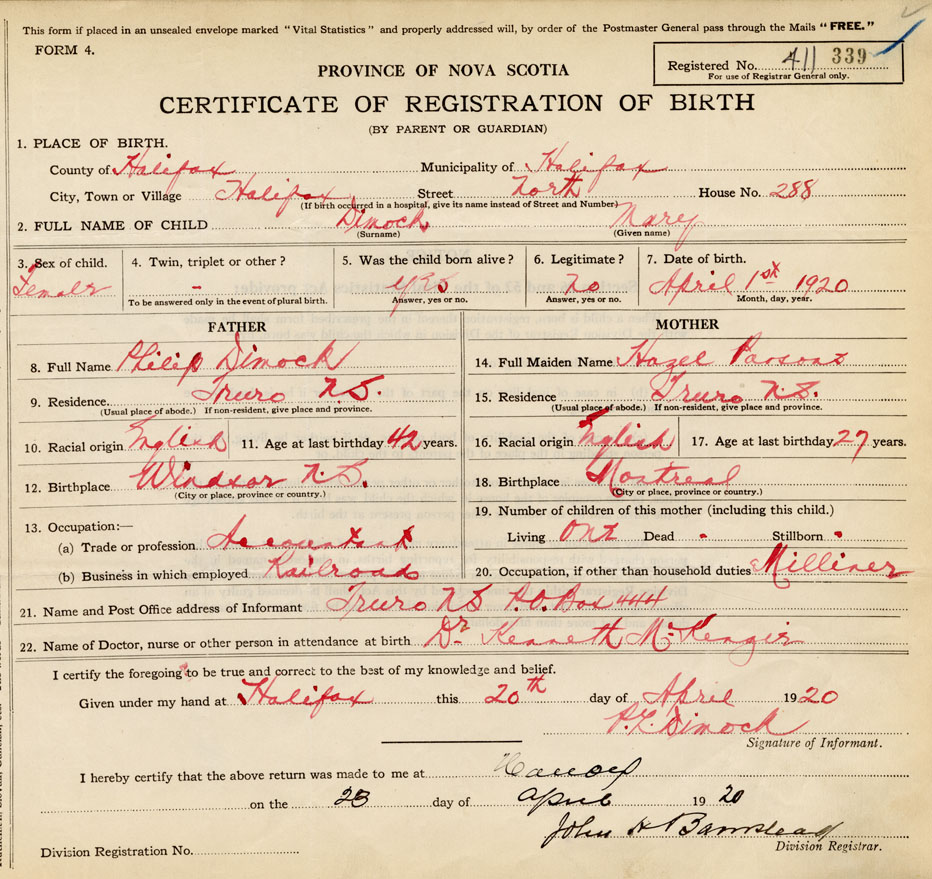 This form if placed in an unsealed envelope marked "Vital Statistics" and properly addressed will, by order of the Postmaster General pass through the Mails "FREE."
FORM 4.
Registered No. 411 339
For use of Registrar General only.
PROVINCE OF NOVA SCOTIA
CERTIFICATE OF REGISTRATION OF BIRTH
(BY PARENT OR GUARDIAN)
1. PLACE OF BIRTH.
County of Halifax Municipality of Halifax
City, Town or Village Halifax Street North House No. 288
(If birth occurred in a hospital, give its name instead of Street and Number)
2. FULL NAME OF CHILD Dimock Mary
(Surname) (Given name)
3. Sex of child. 4. Twin, triplet or other? 5. Was the child born alive? 6. Legitimate? 7. Date of birth.
Female - yes No April 1st 1920
To be answered only in the event of plural birth. Answer, yes or no. Answer, yes or no. Month, day, year.
FATHER MOTHER
8. Full Name Philip Dimock 14. Full Maiden Name Hazel Parsons
9. Residence Truro N.S. 15. Residence Truro N.S.
(Usual place of abode.) If non-resident, give place and province. (Usual place of abode.) If non-resident, give place and province.
10. Racial origin English 11. Age at last birthday 42 years. 16. Racial origin English 17. Age at last birthday 27 years.
12. Birthplace Windsor N.S. 18. Birthplace Montreal
(City or place, province or country.) (City or place, province or country.)
13. Occupation:— 19. Number of children of this mother (including this child.)
(a) Trade or profession Accountant Living One Dead - Stillborn -
(b) Business in which employed Railroad 20. Occupation, if other than household duties Milliner
21. Name and Post Office address of Informant Truro NS P.O. Box 444
22. Name of Doctor, nurse or other person in attendance at birth Dr. Kenneth McKenzie
I certify the foregoing to be true and correct to the best of my knowledge and belief.
Given under my hand at Halifax this 20th day of April 1920
P.F. Dimock
Signature of Informant.
I hereby certify that the above return was made to me at
on the 23 day of April 1920
John H Barnstead
Division Registrar.
Division Registration No.